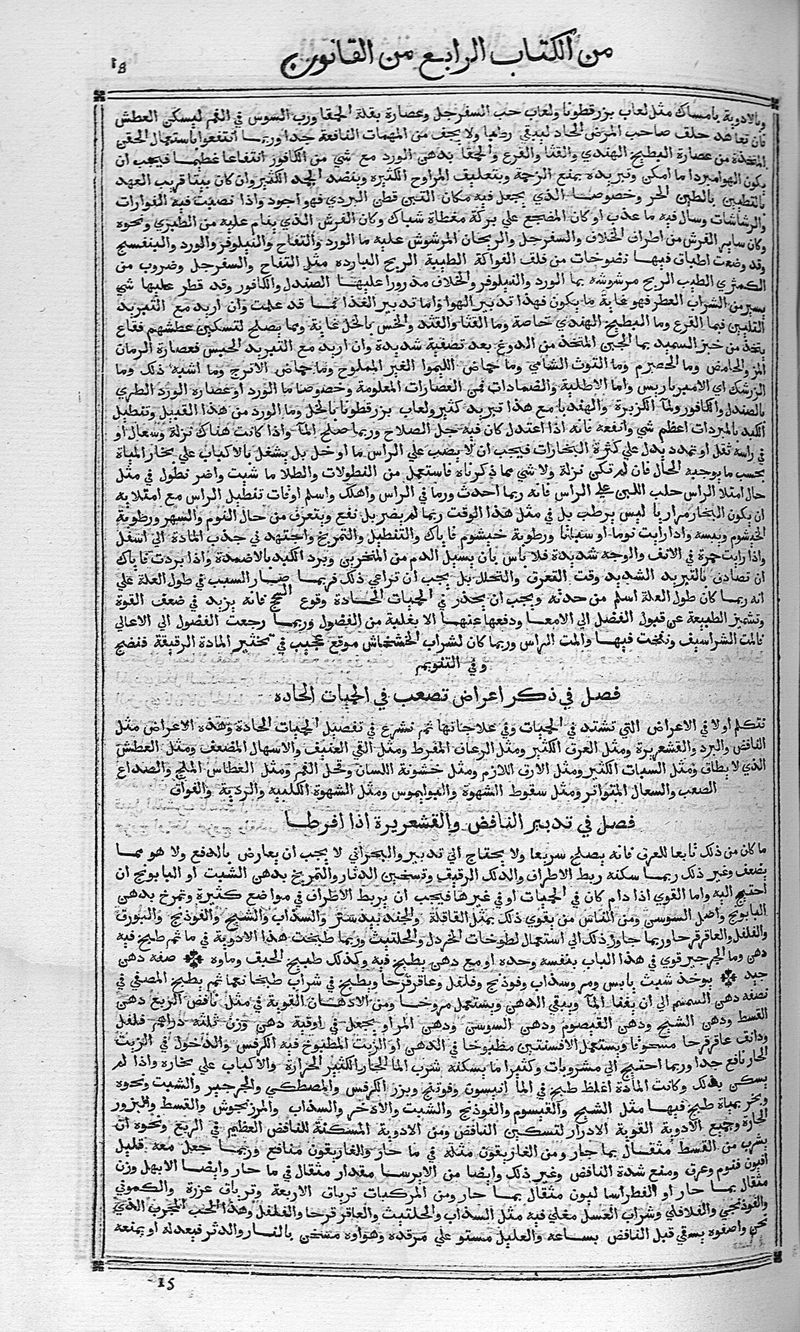 من الكتاب الرابع من القانون
وبالادوية بامساك مثل لعاب بزرقطونا ولعاب حب السفرجل وعصارة بقلة الحمقا ورب السوس في الفم ليسكن العطش
فان تعاهد حلف صاحب المرض الحاد ليبقي رطبا ولا يجف من المهمات النافعة جدا وربما انتفعوا باستعمال الحقن
المتخذة من عصارة البطيخ الهندي والقثا والقرع والحمقا بدهن الورد مع شي من الكافور انتفاعا عظيما فيجب ان
يكون الهوا مبردا ما امكن وتبريده بمنع الزحمة وبتعليف المراوح الكثيره وبنضد الجمد الكثير وان كان بيتا قريب العهد
بالتطيين بالطين الحر وخصوصا الذي يجعل فيه مكان التبن قطن البردي فهو اجود واذا نصبت فيه الفوارات
والرشاشات وسال فيه ما عذب او كان المضجع علي بركة مغطاة شباك وكان الفرش الذي ينام عليه من الطبري ونحوه
وكان ساير الفرش من اطراف الخلاف والسفرجل والريحان المرشوش عليه ما الورد والتفاح والنيلوفر والورد والبنفسج
وقد وضعت اطباق فيها نضوحات من فلف الفواكة الطيبة الريح الباردة مثل التفاح والسفرجل وضروب من
الكمثري الطيب الريح مرشوشه بما الورد والنيلوفر والخلاف مذرورا عليها الصندل والكافور وقد قطر عليها شي
يسير من الشراب العطر فهو غاية ما يكون فهذا تدبير الهوا واما تدبير الغذا فما قد علمت وان اريد مع التبريد
التليين فبما القرع وما البطيخ الهندي خاصة وما القثا والقند والخس بالخل غاية وبما يصلح لتسكين عطشهم فقاع
يتخذ من خبز السميد بما الجبن المتخذ من الدوغ بعد تصفية شديدة وان اريد مع التبريد الحبس فعصارة الرمان
المز والحامض وما الحصرم وما التوت الشامي وما حماض الليموا الغير المملوح وما حماض الاترج وما اشبه ذلك وما
الزرشك اي الاميرباريس واما الاطلية والضمادات فمن العصارات المعلومة وخصوصا ما الورد او عصارة الورد الطري
بالصندل والكافور ولما الكزبرة والهندبا مع هذا تبريد كثير ولعاب بزرقطونا بالخل وما الورد من هذا القبيل وتضطيل
الكبد بالمبردات اعظم شي وانفعه فانه اذا اعتدل كان فيه جل الصلاح وربما صلح الما واذا كانت هناك نزلة وسعال او
في راسه ثقل او تمدد يدل علي كثرة البخارات فيجب ان لا يصب علي الراس ما او خل بل يشغل بالاكباب علي بخار المياة
بحسب ما يوجبه الحال فان لم تكن نزلة ولا شي مما ذكرناه فاستعمل من النطولات والطلا ما شيت واضر نطول في مثل
حال امتلا الراس حلب اللبن علي الراس فانه ربما احدث ورما في الراس واهلك واسلم اوقات تنطيل الراس مع امتلا به
ان يكون البخار مراريا ليس برطب بل في مثل هذا الوقت ربما لم يضر بل نفع ويتعرف من حال النوم والسهر ورطوبة
الخيشوم ويبسه واذا رايت نوما او سباتا ورطوبة خيشوم فاياك والتنطيل والتمريخ واجتهد في جذب المادة الي اسفل
واذا رايت حمرة في الانف والوجه شديدة فلا باس بان يسيل الدم من المنخرين ويبرد الكبد بالاضمدة واذا بردت فاياك
ان تصادف بالتبريد الشديد وقت التعرق والتحلل بل يجب ان تراعي ذلك فربما صار السبب في طول العلة علي
انه ربما كان طول العلة اسلم من حدته ويجب ان يحذر في الحميات الحادة وقوع السحج فانه يزيد في ضعف القوة
وتشمير الطبيعة عن قبول الفضل الي الامعا ودفعها عنها الا بغلبة من الفضول وربما رجعت الفضول الي الاعالي
فالمت الشراسيف ونفخت فيها والمت الراس وربما كان لشراب الخشخاش موقع عجيب في تخثير المادة الرقيقة فتنضج
وفي التنويم
فصل في ذكر اعراض تصعب في الحميات الحاده
نتكلم اولا في الاعراض التي تشتد في الحميات وفي علاجاتها ثم نشرع في تفصيل الحميات الحادة وهذه الاعراض مثل
النافض والبرد والقشعريرة ومثل العرق الكثير ومثل الرعاف المفرط ومثل القي العنيف والاسهال المضعف ومثل العطش
الذي لا يطاق ومثل السبات الكثير ومثل الارق اللازم ومثل خشونة اللسان وقحل الفم ومثل العطاس الملح والصداع
الصعب والسعال المتواتر ومثل سقوط الشهوة والبوليموس ومثل الشهوة الكلبيه والردية والفواق
فصل في تدبير النافض والقشعريرة اذا افرطا
ما كان من ذلك تابعا للعرق فانه يصلح سريعا ولا يحتاج الي تدبير والبحراني لا يجب ان يعارض بالدفع ولا هو مما
يضعف وغير ذلك ربما سكنه ربط الاطراف والدلك الرقيق وتسخين الدثار والتمريخ بدهن الشبت او البابونج ان
احتيج اليه واما القوي اذا دام كان في الحميات او في غيرها فيجب ان يربط الاطراف في مواضع كثيرة وتمرخ بدهن
البابونج واصل السوسن ومن الناس من يقوي ذلك بمثل القاقلة والجندبيدستر والسذاب والشيح والفوذنج والبورق
والفلفل والعاقرقرحا وربما جاوز ذلك الي استعمال لطوخات الخردل والحلتيت وربما طبخت هذا الادوية في ما ثم طبخ فيه
دهن وما الجرجير قوي في هذا الباب بنفسه وحده او مع دهن يطبخ فيه وكذلك طبيخ الحبف وماوه ✤ صفه دهن
جيد ✤ يوخذ شبت يابس ومر وسذاب وفوذنج وفلفل وعاقرقرحا ويطبخ في شراب طبخا نعما ثم يطبخ المصفي في
نصفه دهن السمسم الي ان يفنا الما ويبقي الدهن ويستعمل مروخا ومن الادهان القوية في مثل نافض الربع دهن
القسط ودهن الشيح ودهن القيصوم ودهن السوسن ودهن المر او يجعل في اوقية دهن وزن ثلثه دراهم فلفل
ودانف عاقرقرحا مسحوقا ويستعمل الافسنتين مطبوخا في الدهن او الزيت المطبوخ فيه الكرفس والدخول في الزيت
الحار نافع جدا وربما احتيج الي مشروبات وكثيرا ما يسكنه شرب الما الحار الكثير الحرارة والاكباب علي بخاره واذا لم
يسكن بذلك وكانت المادة اغلظ طبخ في الما انيسون وفوتنج وبزر الكرفس والمصطكي والجرجير والشبت ونحوه
وبخر بمياة طبخ فيها مثل الشيح والقيسوم والفوذنج والشبت والاذخر والسذاب والمرزنجوش والقسط والبزور
الحارة وجميع الادوية القوية الادرار لتسكين النافض ومن الادوية المسكنة للنافض العظيم في الربع ونحوه ان
يشرب من القسط مثقال بما حار ومن الغاريقون مثله في ما حار والغاريقون منافع وربما جعل معه قليل
افيون فنوم وعرق ومنع شدة النافض وغير ذلك وايضا من الايرسا مقدار مثقال في ما حار وايضا الابهل وزن
مثقال بما حار او الفطراسا ليون مثقال بما حار ومن المركبات ترياق الاربعة وترياق عزرة والكموني
والفوذنجي والفلافلي وشراب العسل مغلي فيه مثل السذاب والحلتيت والعاقرقرحا والفلفل وهذا الحب المجرب الذي
نحن واصفوه يسقي قبل النافض بساعه والعليل مستو علي مرقده وهواوه مسخن بالنار والدثر فيعدله او يمنعه
15